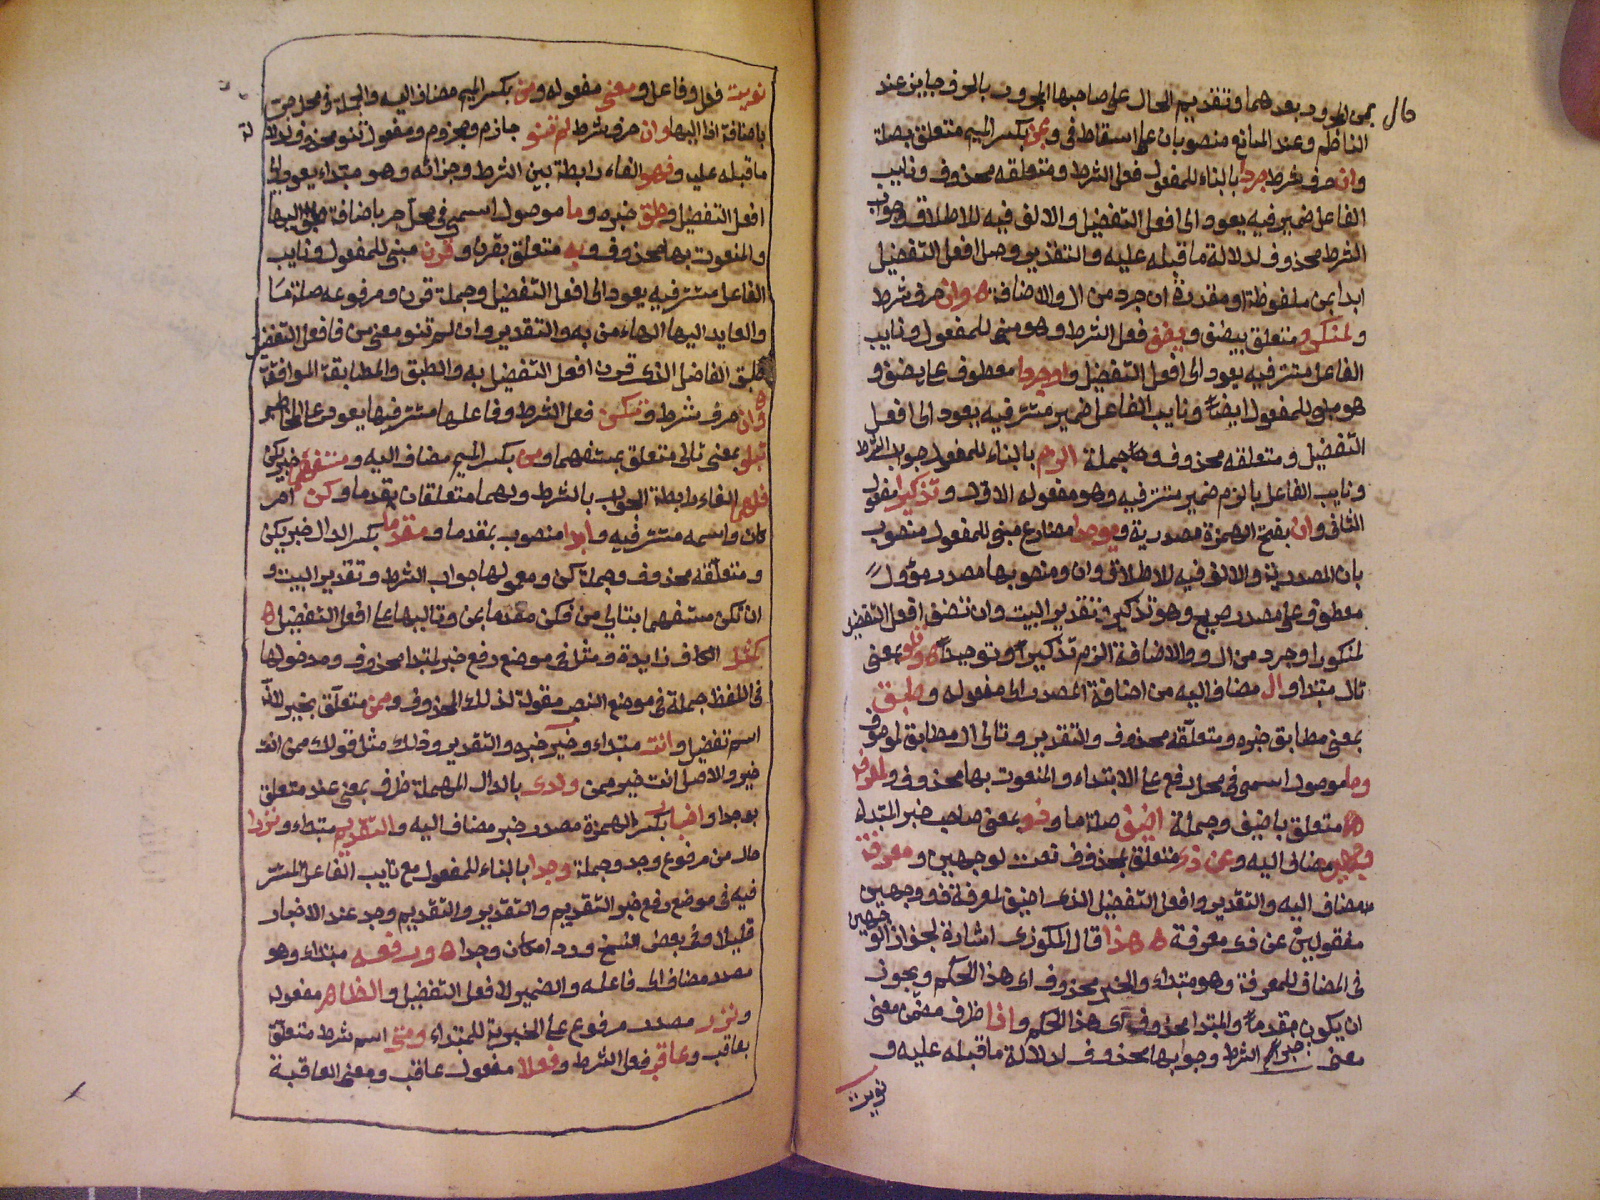 بمن المجرور بعدهما وتقديم الحال على صاحبها المجرور بالحرف جايز عند
الناظم وعند المانع منصوبان على اسقاط في وبمن بكسر الميم متعلق بصلة
وان حرف شرط جردا بالبناء للمفعول فعل الشرط ومتعلقه محذوف ونايب
الفاعل ضمير فيه يعود الى افعل التفضيل والالف فيه للاطلاق وجواب
الشرط محذوف لدلالة ما قبله عليه والتقدير وصل افعل التفضيل
ابدا بمن ملفوظة او مقدرة ان جرد من ال والاضافة ه وان حرف شرط
ولمنكور متعلق بيضف ويضف فعل الشرط وهو مبني للمفعول ونايب
الفاعل مستتر فيه يعود الى افعل التفضيل واوجردا معطوف على يضف و
هو مبني للمفعول ايضا ونايب الفاعل ضمير مستتر فيه يعود الى افعل
التفضيل ومتعلقه محذوف وجملة الزم بالبناء للمفعول جواب الشرط
ونايب الفاعل بالزم ضمير مستتر فيه وهو مفعوله الاول وتذكيرا مفعول
الثاني وان بفتح الهمزة مصدرية ويوحدا مضارع مبني للمفعول منصوب
بان المصدرية والالف فيه للاطلاق وان ومنصوبها مصدر مؤول
معطوف على مصدر صريح وهو تذكير وتقدير البيت وان تضف افعل التفضيل
لمنكور او جرد من ال والاضافة الزم تذكيرا وتوحيدا ه وتلو بمعنى
تال مبتدا وال مضاف اليه من اضافة المصدر الى مفعوله وطبق
بمعنى مطابق خبره ومتعلقه محذوف والتقدير وتالى ال مطابق لموصوف
وما موصول اسمي في محل رفع على الابتداء والمنعوت بها محذوف ولمعرفه
متعلق باضيف وجملة اضيف صلة ما وذو بمعنى صاحب خبر المبتداء
وجهين مضاف اليه وعن ذي متعلق بمحذوف نعت لوجهين ومعرفة
مضاف اليه والتقدير وافعل التفضيل الذي اضيف لمعرفة ذو وجهين
منقولين عن ذي معرفة ه هذا قال المكودي اشارة لجواز الوجهين
في المضاف للمعرفة وهو مبتداء والخبر محذوف اي هذا الحكم ويجوز
ان يكون مقدما والمبتدا محذوف اي هذا الحكم واذا ظرف مضمن معنى
معنى الشرط وجوابها محذوف لدلالة ما قبله عليه و
نويت
نويت فعل وفاعل ومعنى مفعوله ومن بكسر الميم مضاف اليه والجملة في محل جر
باضافة اذا اليها وان حرف شرط لم تنو جازم ومجزوم ومفعول تنو محذوف لدلالة
ما قبله عليه وفهو الفاء رابطة بين الشرط وجزائه وهو مبتداء يعود الى
افعل التفضيل وطبق خبره وما موصول اسمي في محل جر باضافة طبق اليها
والمنعوت بها محذوف وبه متعلق بقرن وقرن مبني للمفعول ونايب
الفاعل مستتر فيه يعود الى افعل التفضيل وجملة قرن ومرفوعه صلة ما
والعايد اليها الهاء من به والتقدير وان لم تنو معنى من فافعل التفضيل
طبق الفاضل الذي قرن افعل التفضيل به والطبق والمطابقة الموافقة
ه وان حرف شرط وتكن فعل الشرط وفاعلها مستتر فيها يعود على المخاطب
بتلو بمعنى تالى متعلق بمستفهما ومن بكسر الميم مضاف اليه ومستفهما خبر يكن
فلهما الفاء رابطة الجواب بالشرط ولهما متعلقان بمقدما وكن امر
كان واسمه مستتر فيه وابدا منصوب بمقدما ومقدما بكسر الدال خبر يكن
ومتعلقه محذوف وجملة كن ومعمولها جواب الشرط وتقدير البيت و
ان تكن مستفهما بتالي من فكن مقدما لمن وتاليها على افعل التفضيل ه
كمثل الكاف زايدة ومثل في موضع رفع خبر لمبتدا محذوف ومدخولها
في اللفظ جملة في موضع النصب مقولة لذلك المحذوف وممن متعلق بخير لانه
اسم تفضيل وانت مبتداء وخير خبره والتقدير وذلك مثل قولك ممن انت
خير والاصل انت خير ممن ولدى بالدال المهملة ظرف بمعنى عند متعلق
بوجدا واخبار بكسر الهمزة مصدر خبر مضاف اليه والتقديم مبتداء ونزرا
حال من مرفوع وجد وجملة وجدا بالبناء للمفعول مع نايب الفاعل المستتر
فيه في موضع رفع خبر التقديم والتقدير والتقديم وجد عند الاخبار
قليلا وفي بعض النسخ ورد امكان وجدا ه ورفعه مبتداء وهو
مصدر مضاف الى فاعله والضمير لافعل التفضيل والظاهر مفعوله
ونزر مصدر مرفوع على الخبرية للمبتداء ومتى اسم شرط متعلق
بعاقب وعاقب فعل الشرط وفعلا مفعول عاقب ومعنى العاقبة